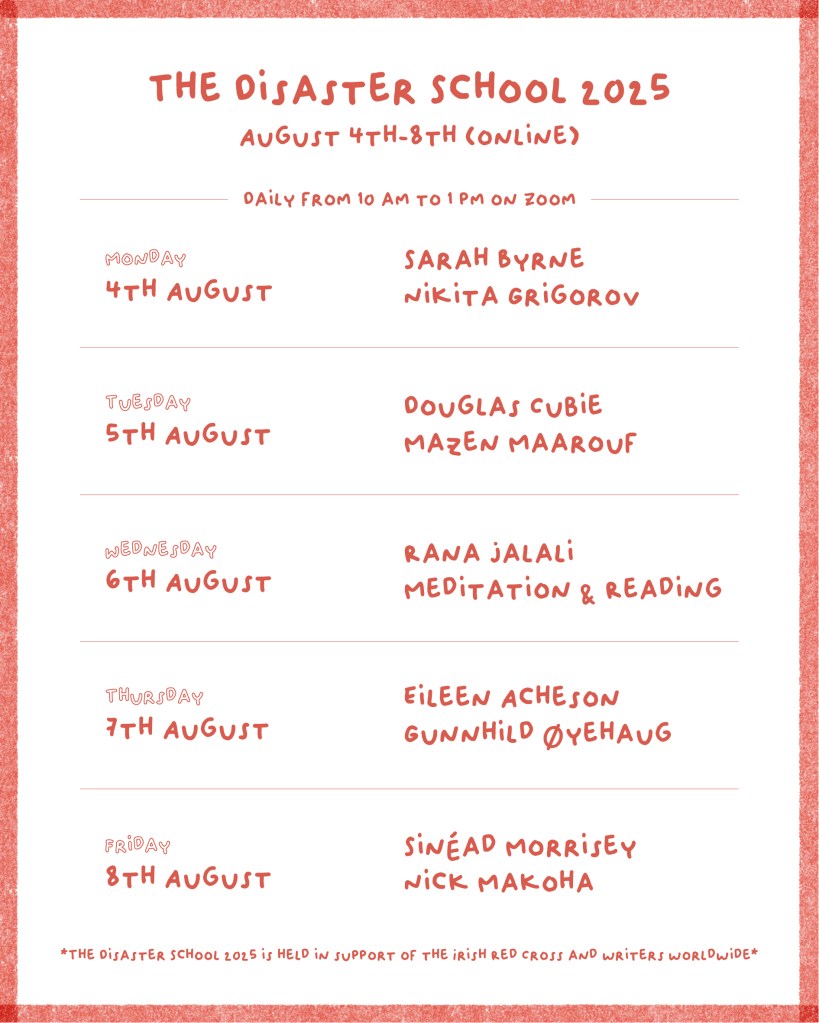 THE DiSASTER SCHOOL 2025
AUGUST 4TH-8TH (ONLiNE)
DAiLY FROM 10 AM TO 1 PM ON ZOOM
MONDAY
4TH AUGUST
SARAH BYRNE
NiKiTA GRiGOROV
TUESDAY
5TH AUGUST
DOUGLAS CUBiE
MAZEN MAAROUF
WEDNESDAY
6TH AUGUST
RANA jALALi
MEDiTATiON & READiNG
THURSDAY
7TH AUGUST
EiLEEN ACHESON
GUNNHiLD ØYEHAUG
FRiDAY
8TH AUGUST
SiNÉAD MORRiSEY
NiCK MAKOHA
*THE DiSASTER SCHOOL 2025 iS HELD iN SUPPORT OF THE iRiSH RED CROSS AND WRiTERS WORLDWiDE*